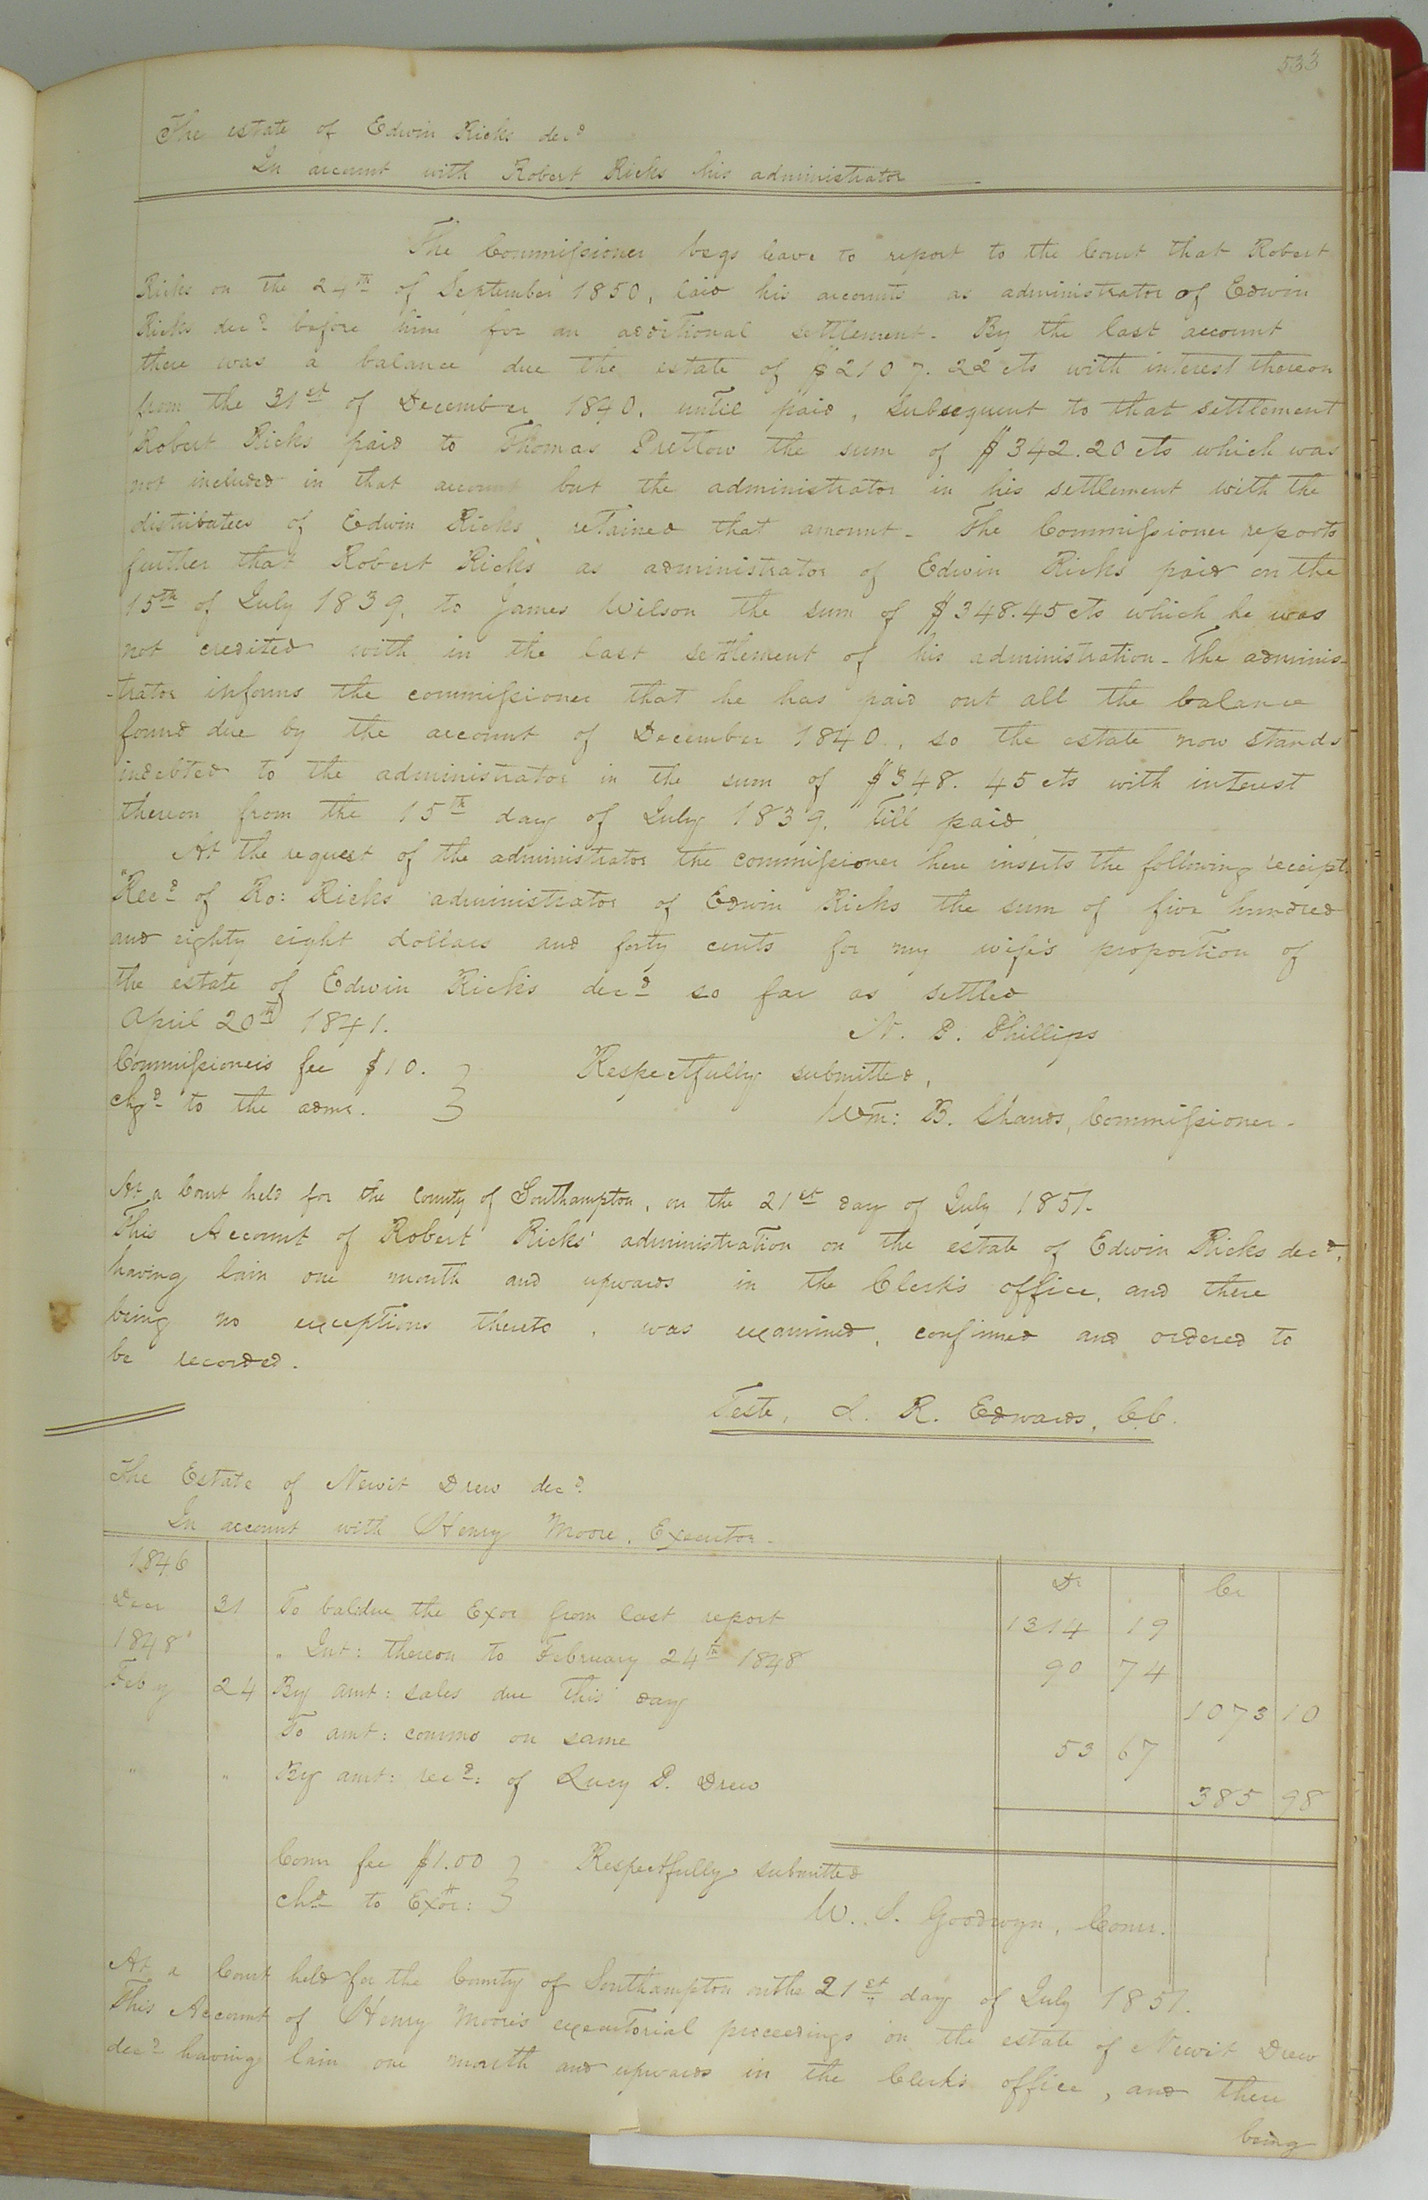 533
The estate of Edwin Ricks decd
In account with Robert Ricks his administrator
The Commissioner begs leave to report to the Court that Robert
Ricks on the 24th of September 1850, laid his accounts as administrator of Edwin
Ricks decd before him for an additional settlement. By the last account
there was a balance due the estate of $2107.22 cts with interest thereon
from the 31st of December 1840, until paid, Subsequent to that settlement
Robert Ricks paid to Thomas Pretlow the sum of $342.20 cts which was
not included in that account but the administrator in his settlement with the
distributees of Edwin Ricks, retained that amount - The Commissioner reports
further that Robert Ricks as administrator of Edwin Ricks paid on the
15th of July 1839, to James Wilson the sum of $348.45 cts which he was
not credited with in the last settlement of his administration - The adminis-
-trator informs the commissioner that he has paid out all the balance
found due by the account of December 1840, so the estate now stands
indebted to the administrator in the sum of $348.45 cts with interest
thereon from the 15th day of July 1839, till paid
At the request of the administrator the commissioner here inserts the following receipt.
"Recd of Ro: Ricks administrator of Edwin Ricks the sum of five hundred
and eighty eight dollars and forty cents for my wife's proportion of
the estate of Edwin Ricks decd so far as settled
April 20th 1841. N. P. Phillips
Commissioners fee $10. } Respectfully submitted,
chgd to the admr. } Wm: B. Shands, Commissioner -
At a Court held for the County of Southampton, on the 21st day of July 1851.
This Account of Robert Ricks' administration on the estate of Edwin Ricks decd,
having lain one month and upwards in the Clerk's office, and there
being no exceptions thereto, was examined, confirmed and ordered to
be recorded.
Teste, L. R. Edwards, C.C.
The Estate of Newit Drew decd
In account with Henry Moore, Executor -
1846 Dr Cr
Decr 31 To bal: due the Exor from last report 1314 19
1848 " Int: thereon to February 24th 1848 90 74
Feby 24 By amt: sales due this day 1073 10
To amt: comms on same 53 67
" " By amt: recd: of Lucy P. Drew 385 98
Comr fee $1.00 } Respectfully submitted
chd to Exor: } W. S. Goodwyn, Comr.
At a Court held for the County of Southampton on the 21st day of July 1851.
This Account of Henry Moore's executorial proceedings on the estate of Newit Drew
decd having lain one month and upwards in the Clerk's office, and there
being